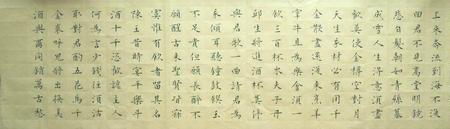 上來奔流到海不復
回君不見高堂明鏡
悲白髮朝如青絲暮
成雪人生得意須盡
歡莫使金樽空對月
天生我材必有用千
金散盡還復來烹羊
宰牛且為樂會須一
飲三百杯岑夫子丹
邱生將進酒杯莫停
與君歌一曲請君為
我傾耳聽鐘鼓饌玉
不足貴但願長醉不
願醒古來聖賢皆寂
寞惟有飲者留其名
陳王昔時宴平樂斗
酒十千恣歡謔主人
何為言少錢徑須沽
取對君酌五花馬千
金裘呼兒將出換美
酒與爾同銷萬古愁